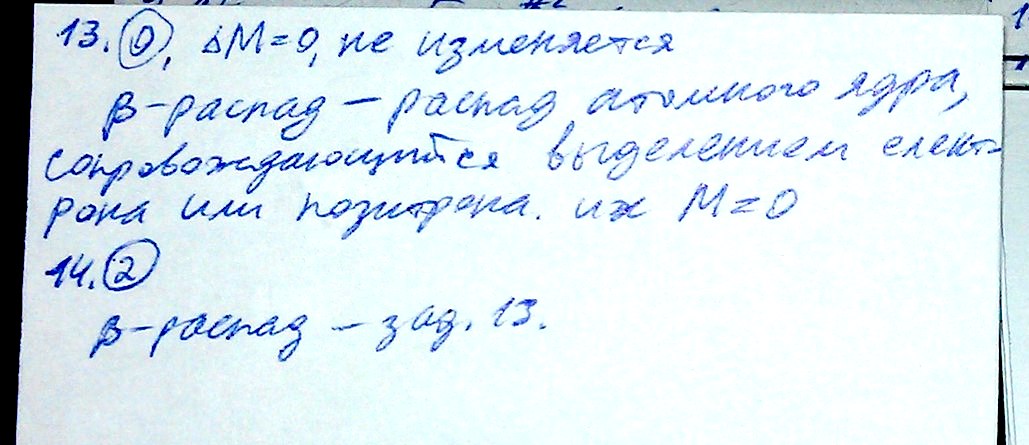 13. 0, ΔM=0, не изменяется
β-распад – распад атомного ядра,
сопровождающийся выделением елект-
рона или позитрона. их M=0
14. 2
β-распад – зад. 13.